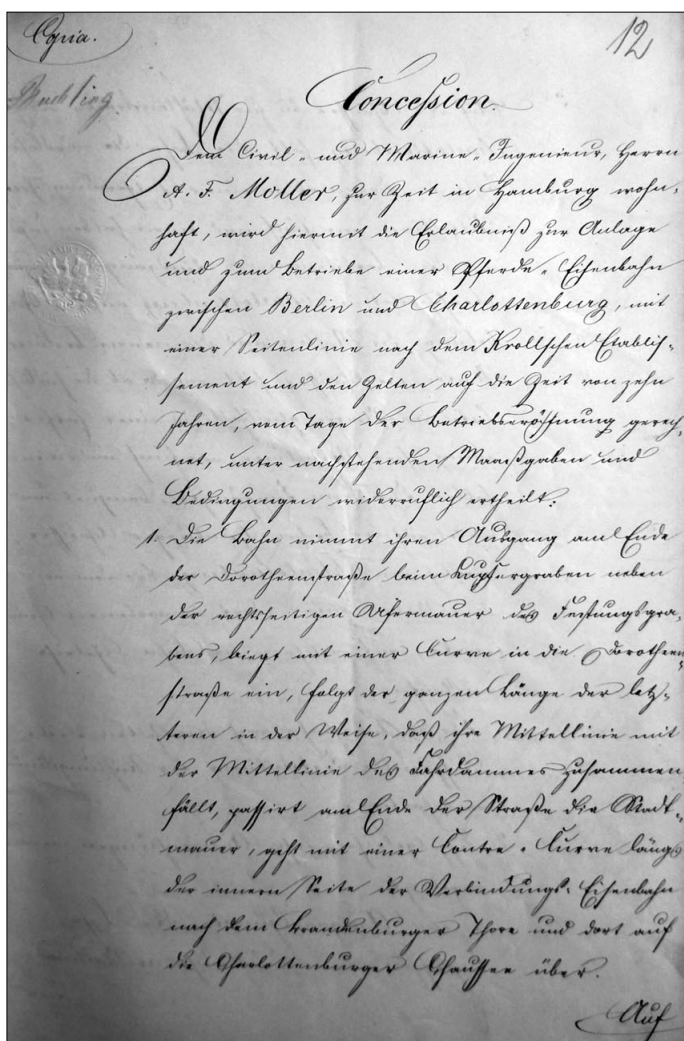 Copia.
12
Concession.
Dem Civil- und Marine-Ingenieur, Herrn
A. F. Moller, zur Zeit in Hamburg wohn-
haft, wird hiermit die Erlaubniß zur Anlage
und zum Betriebe einer Pferde-Eisenbahn
zwischen Berlin und Charlottenburg, mit
einer Seitenlinie nach dem Krollschen Etablis-
sement und den Zelten auf die Zeit von zehn
Jahren, vom Tage der Betriebseröffnung gerech-
net, unter nachstehenden Maaßgaben und
Bedingungen widerruflich ertheilt:
1. Die Bahn nimmt ihren Ausgang am Ende
der Dorotheenstraße beim Kupfergraben neben
der rechtsseitigen Ufermauer des Festungsgra-
bens, biegt mit einer Curve in die Dorotheen-
straße ein, folgt der ganzen Länge der letz-
teren in der Weise, daß ihre Mittellinie mit
der Mittellinie des Fahrdammes zusammen
fällt, passirt am Ende der Straße die Stadt-
mauer, geht mit einer Contre-Curve längs
der innern Seite der Verbindungs-Eisenbahn
nach dem Brandenburger Thore und dort auf
die Charlottenburger Chaussee über.
Auf